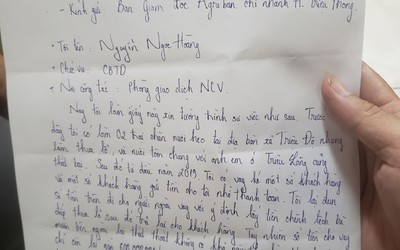 - Kính gửi Ban Giám đốc Agribank chi nhánh H. Triệu Phong.
- Tôi tên: Nguyễn Ngọc Hoàng
- Chức vụ: CBTD
- Nơi công tác: Phòng giao dịch NCV.
Nay tôi làm giấy này xin tường trình sự việc như sau. Trước
đây tôi có làm 02 trại chăn nuôi heo tại địa bàn xã Triệu Độ nhưng
làm thua lỗ, và nuôi tôm chung với anh em ở Triệu Lăng cũng
thất bại. Sau đó từ đầu năm 2019. Tôi có vay hộ một số khách hàng
và một số khách hàng gửi tiền cho tôi nhờ thanh toán. Tôi lại đem
số tiền trên đi cho người ngoài vay với ý định lấy tiền chênh lệch bù
đắp thua lỗ sau đó trả lại cho khách hàng. Tuy nhiên số tiền cho vay